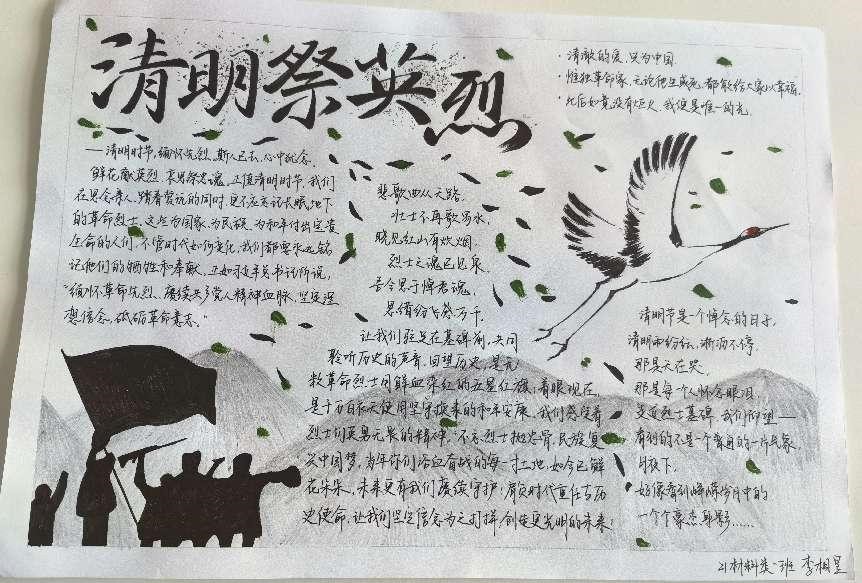 清明祭英烈
·清澈的爱，只为中国.
·惟独革命家，无论他生或死，都能给大家以幸福.
·此后如竟没有炬火，我便是唯一的光.
——清明时节，缅怀先烈，斯人已去，心中犹念.
鲜花献英烈，长思祭忠魂，正值清明时节，我们
在思念亲人，踏春赏玩的同时，更不应忘记长眠地下
的革命烈士，这些为国家、为民族、为和平付出宝贵
生命的人们，不管时代如何变化，我们都要永远铭
记他们的牺牲和奉献，正如习主席书记所说，
“缅怀革命先烈、赓续共产党人精神血脉，坚定理
想信念，砥砺革命意志。”
悲歌曲从天路，
壮士不再歌易水，
晓见红山有炊烟，
烈士之魂已归泉.
吾今思于悼君魂，
思绪纷飞葵万千，
让我们驻足在墓碑前，共同
聆听历史的声音，回望历史，是无
数革命烈士用鲜血染红的五星红旗；着眼现在，
是千百白衣天使用坚守换来的和平安康，我们感受着
烈士们英勇无畏的精神，“不忘烈士抛忠骨，民族复
兴中国梦，当年你们浴血奋战的每一寸土地，如今已鲜
花朵朵，未来更有我们赓续守护；肩负时代重任与历
史使命，让我们坚定信念为之打拼，创造更光明的未来！
清明节是一个悼念的日子，
清明雨纷纷，淅沥不停，
那是天在哭，
那是每个人怀念眼泪，
走近烈士墓碑，我们仰望——
看到的不是一个普通的一所气象，
月夜下，
好像看到峥嵘岁月中的
一个个豪杰身影……
21材料类一班 李相呈